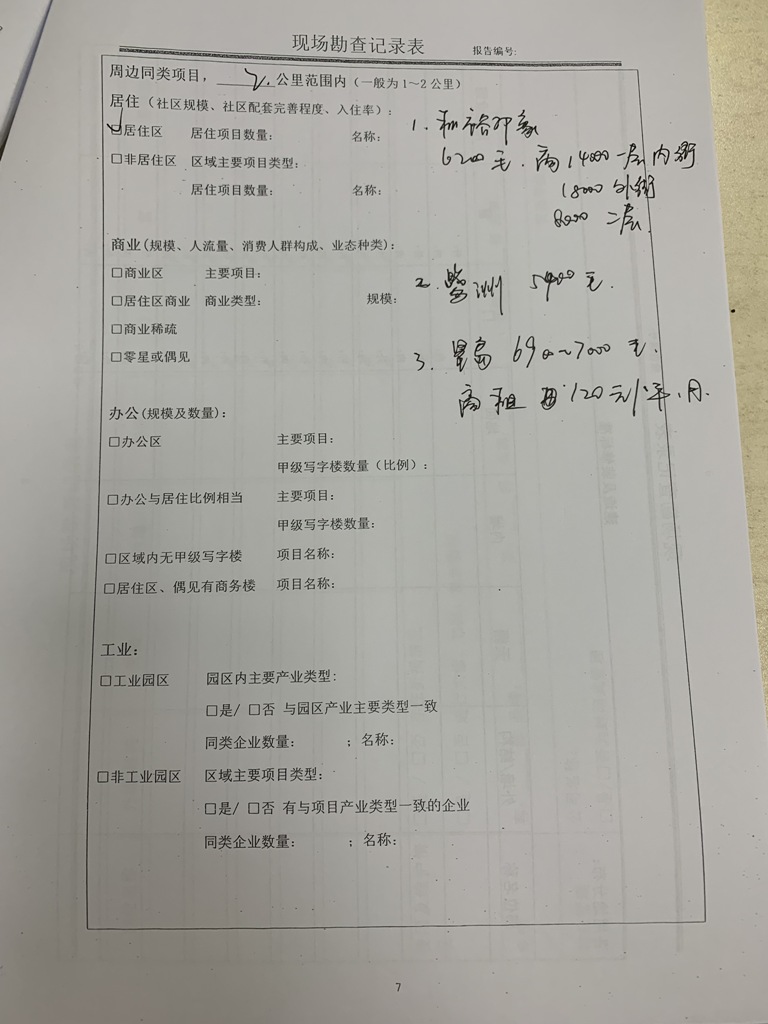 现场勘查记录表 报告编号:
周边同类项目, 2. 公里范围内(一般为1~2公里)
居住(社区规模、社区配套完善程度、入住率):
☑居住区 居住项目数量: 名称: 1. 裕印象
□非居住区 区域主要项目类型: 6200元. 商14000一层内街
18000外街
居住项目数量: 名称:
8000二层.
商业(规模、人流量、消费人群构成、业态种类):
□商业区 主要项目: 2. 洲 5400元.
□居住区商业 商业类型: 规模:
□商业稀疏
□零星或偶见 3. 岛 6900~7000元.
商租 120元/平.月.
办公(规模及数量):
□办公区 主要项目:
甲级写字楼数量(比例):
□办公与居住比例相当 主要项目:
甲级写字楼数量:
□区域内无甲级写字楼 项目名称:
□居住区、偶见有商务楼 项目名称:
工业:
□工业园区 园区内主要产业类型:
□是/ □否 与园区产业主要类型一致
同类企业数量: ; 名称:
□非工业园区 区域主要项目类型:
□是/ □否 有与项目产业类型一致的企业
同类企业数量: ; 名称:
7